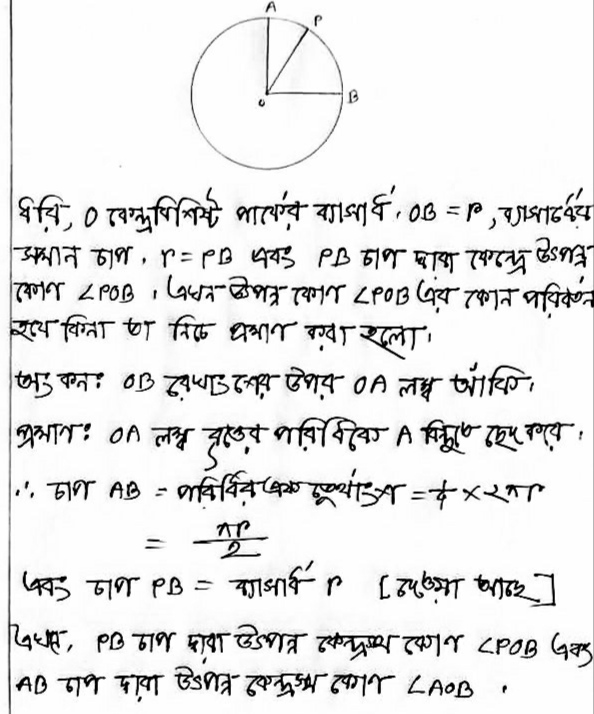 A
P
O
B
ধরি, O কেন্দ্রবিশিষ্ট পার্কের ব্যাসার্ধ, OB = r, ব্যাসার্ধের
সমান চাপ, r = PB এবং PB চাপ দ্বারা কেন্দ্রে উৎপন্ন
কোণ ∠POB । এখন উৎপন্ন কোণ ∠POB এর কোন পরিবর্তন
হবে কিনা তা নিচে প্রমাণ করা হলো।
অঙ্কন: OB রেখাংশের উপর OA লম্ব আঁকি।
প্রমাণ: OA লম্ব বৃত্তের পরিধিকে A বিন্দুতে ছেদ করে।
∴ চাপ AB = পরিধির এক চতুর্থাংশ = 1/4 × ২πr
= πr/2
এবং চাপ PB = ব্যাসার্ধ r [দেওয়া আছে]
এখন, PB চাপ দ্বারা উৎপন্ন কেন্দ্রস্থ কোণ ∠POB এবং
AB চাপ দ্বারা উৎপন্ন কেন্দ্রস্থ কোণ ∠AOB ।